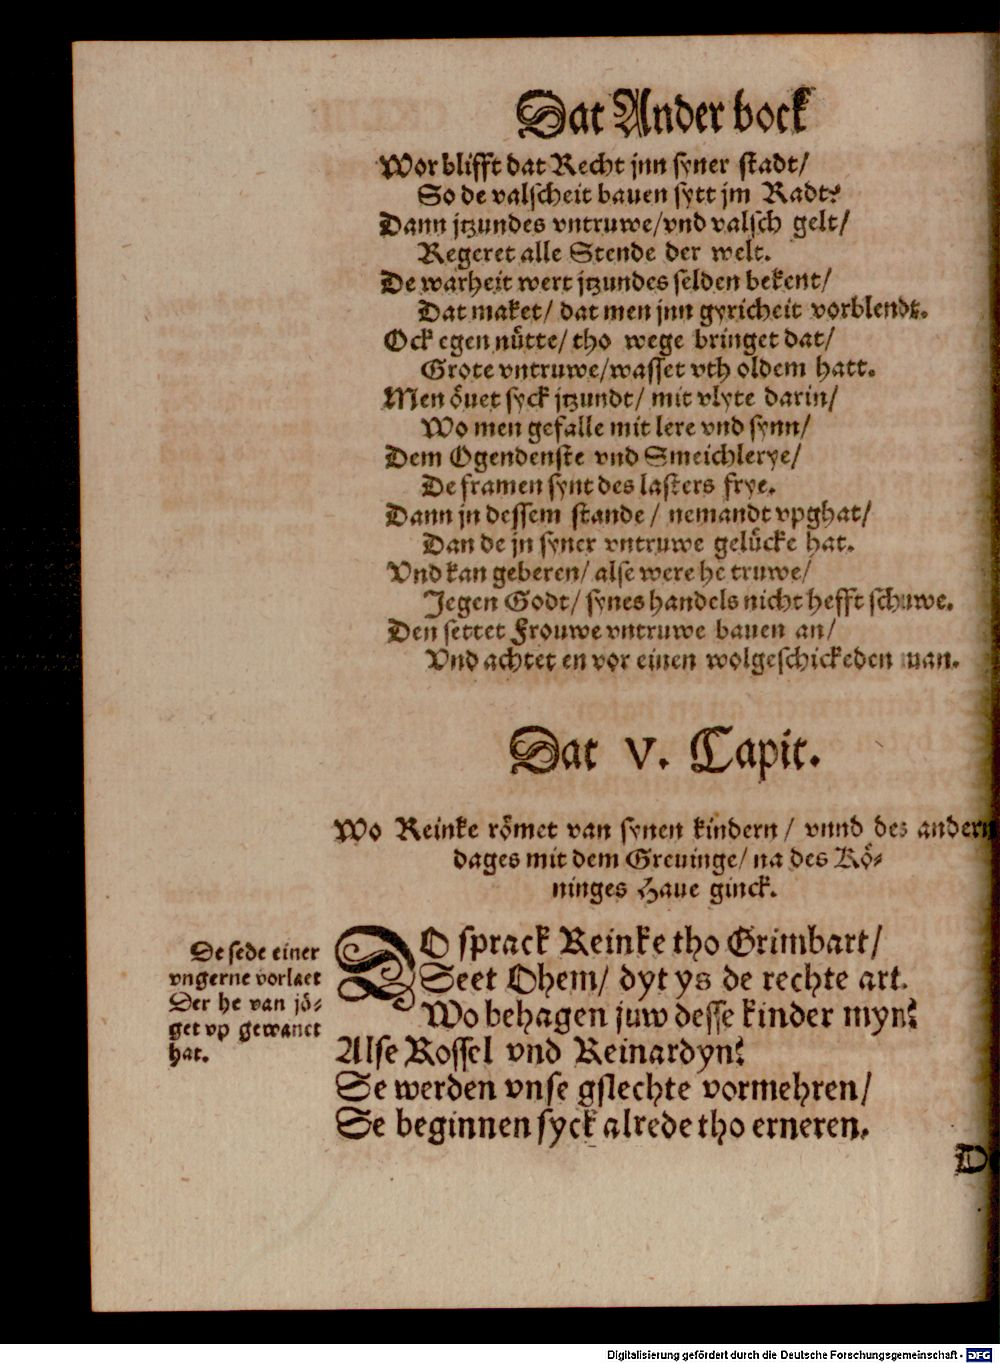 Dat Ander bock
Wor blifft dat Recht jnn syner stadt/
So de valscheit bauen sytt jm Radt?
Dann jtzundes vntruwe/vnd valsch gelt/
Regeret alle Stende der welt.
De warheit wert jtzundes selden bekent/
Dat maket/ dat men jnn gyricheit vorblendt.
Ock egen nütte/ tho wege bringet dat/
Grote vntruwe/wasset vth oldem hatt.
Men öuet syck jtzundt/ mit vlyte darin/
Wo men gefalle mit lere vnd synn/
Dem Ogendenste vnd Smeichlerye/
De framen synt des lasters frye.
Dann jn dessem stande / nemandt vpghat/
Dan de jn syner vntruwe gelücke hat.
Vnd kan geberen/ alse were he truwe/
Jegen Godt/ synes handels nicht hefft schuwe.
Den settet Frouwe vntruwe bauen an/
Vnd achtet en vor einen wolgeschickeden man.
Dat V. Capit.
Wo Reinke römet van synen kindern / vnnd des andern
dages mit dem Greuinge/ na des Kö-
ninges Haue ginck.
De sede einer
vngerne vorlaet
Der he van jö-
get vp gewanet
hat.
DO sprack Reinke tho Grimbart/
Seet Ohem/ dyt ys de rechte art.
Wo behagen juw desse kinder myn?
Alse Rossel vnd Reinardyn?
Se werden vnse gslechte vormehren/
Se beginnen syck alrede tho erneren.
Digitalisierung gefördert durch die Deutsche Forschungsgemeinschaft - DFG